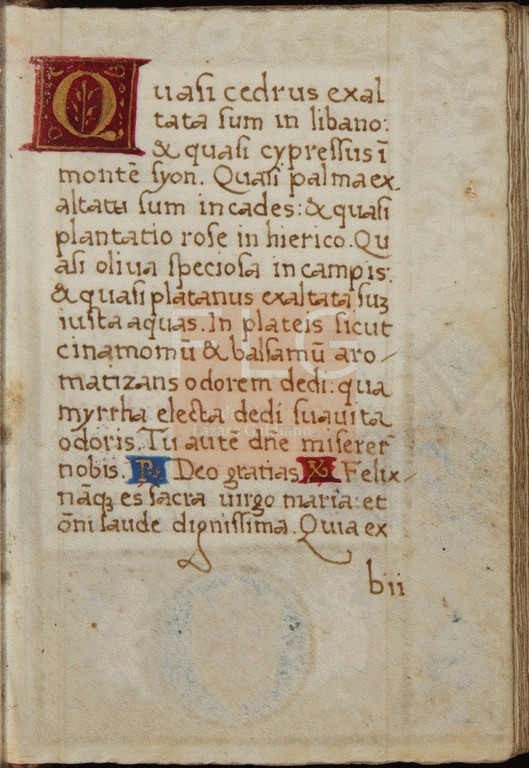 Quasi cedrus exal
tata sum in libano:
& quasi cypressus ī
montē syon. Quasi palma ex
altata sum in cades: & quasi
plantatio rose in hierico. Qu
asi oliua speciosa in campis:
& quasi platanus exaltata suʒ
iusta aquas. In plateis sicut
cinamomū & balsamū aro
matizans odorem dedi: qua
myrrha electa dedi suauita
odoris. Tu autē dn̄e miserer̄
nobis. Deo gratias Felix
nāqʒ es sacra uirgo maria: et
on̄i laude dignissima. Quia ex
bii
FLG